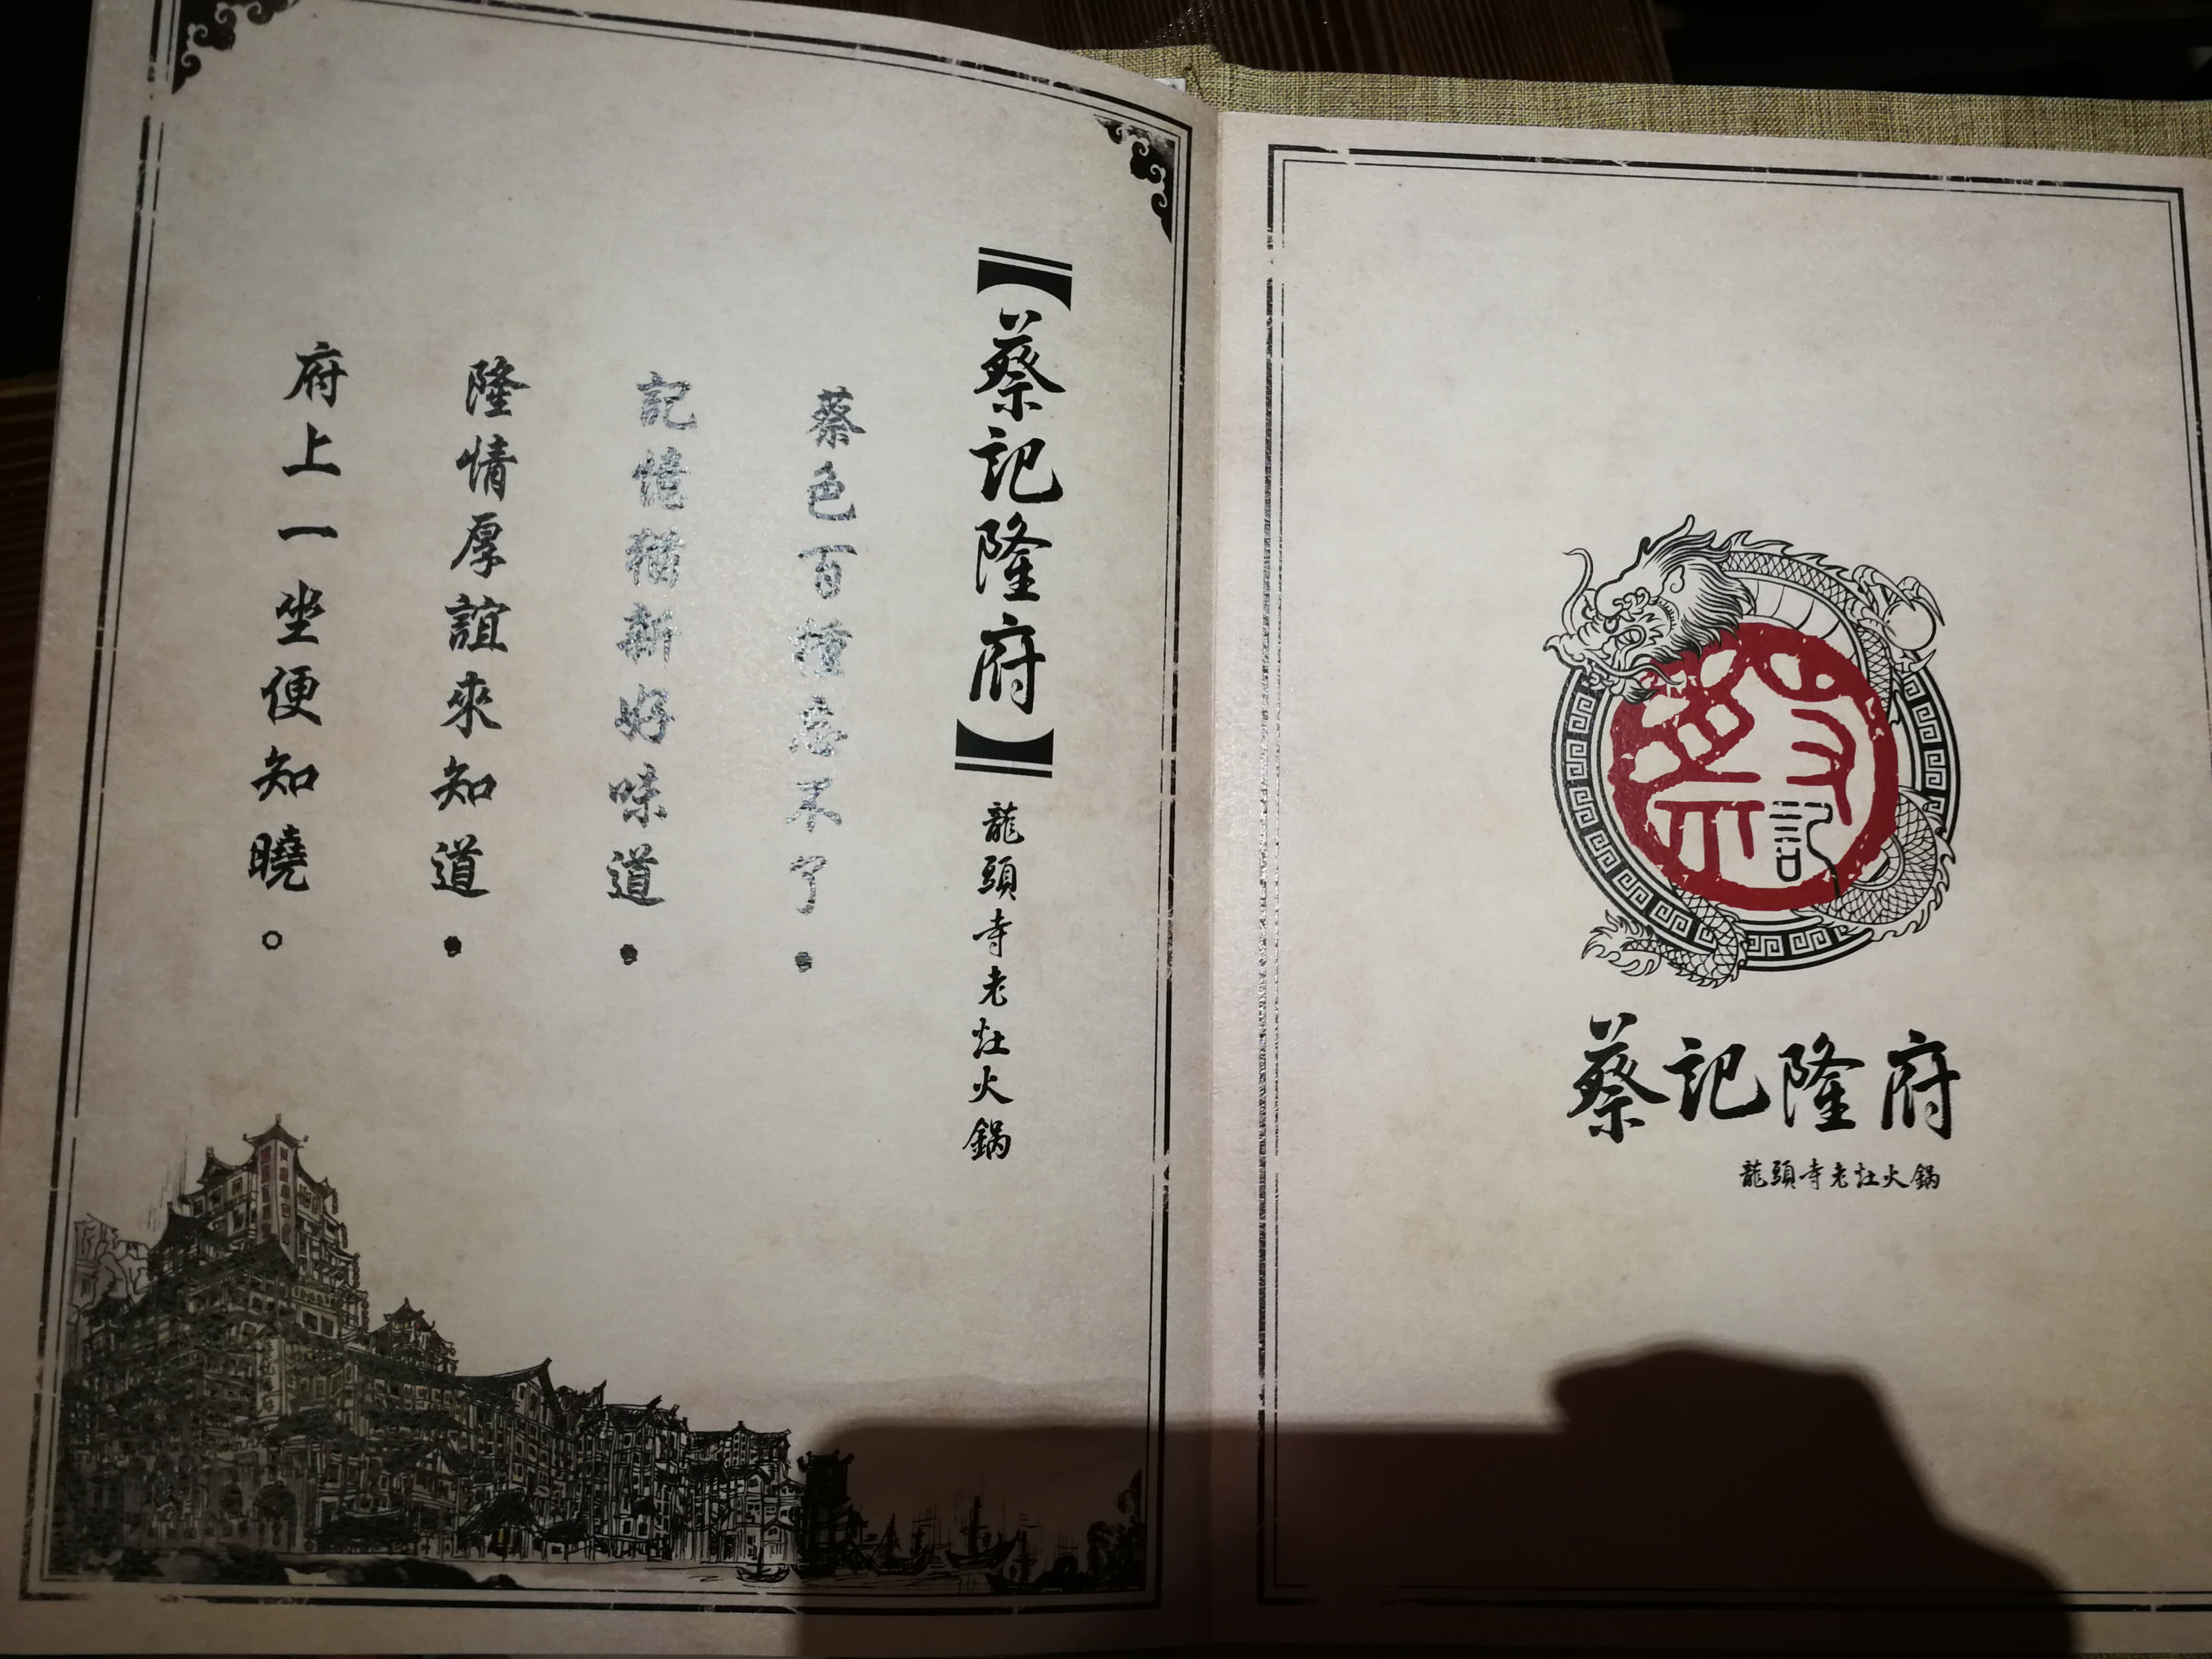 【蔡記隆府】龍頭寺老灶火鍋
蔡色百種忘不了·
記憶猶新好味道·
隆情厚誼來知道·
府上一坐便知曉。
蔡
記
蔡記隆府
龍頭寺老灶火鍋